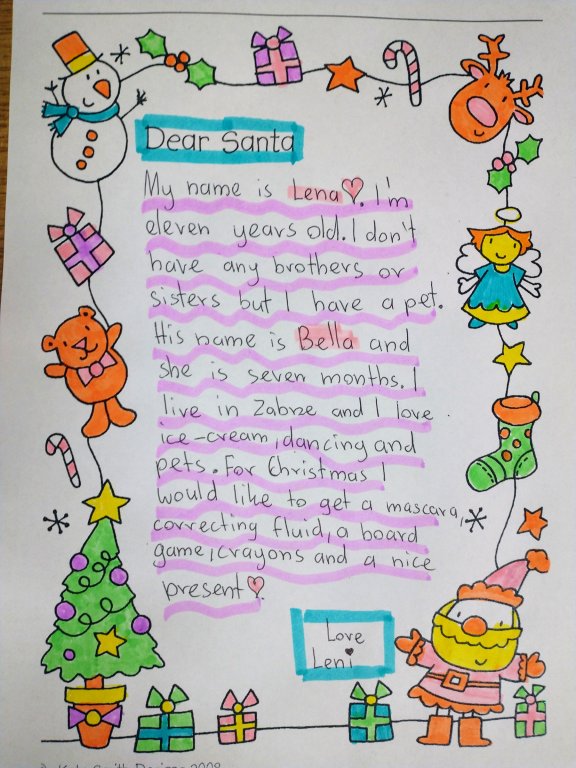 Dear Santa
My name is Lena. I'm
eleven years old. I don't
have any brothers or
sisters but I have a pet.
His name is Bella and
she is seven months. I
live in Zabrze and I love
ice-cream, dancing and
pets. For Christmas I
would like to get a mascara,
correcting fluid, a board
game, crayons and a nice
present
Love
Leni